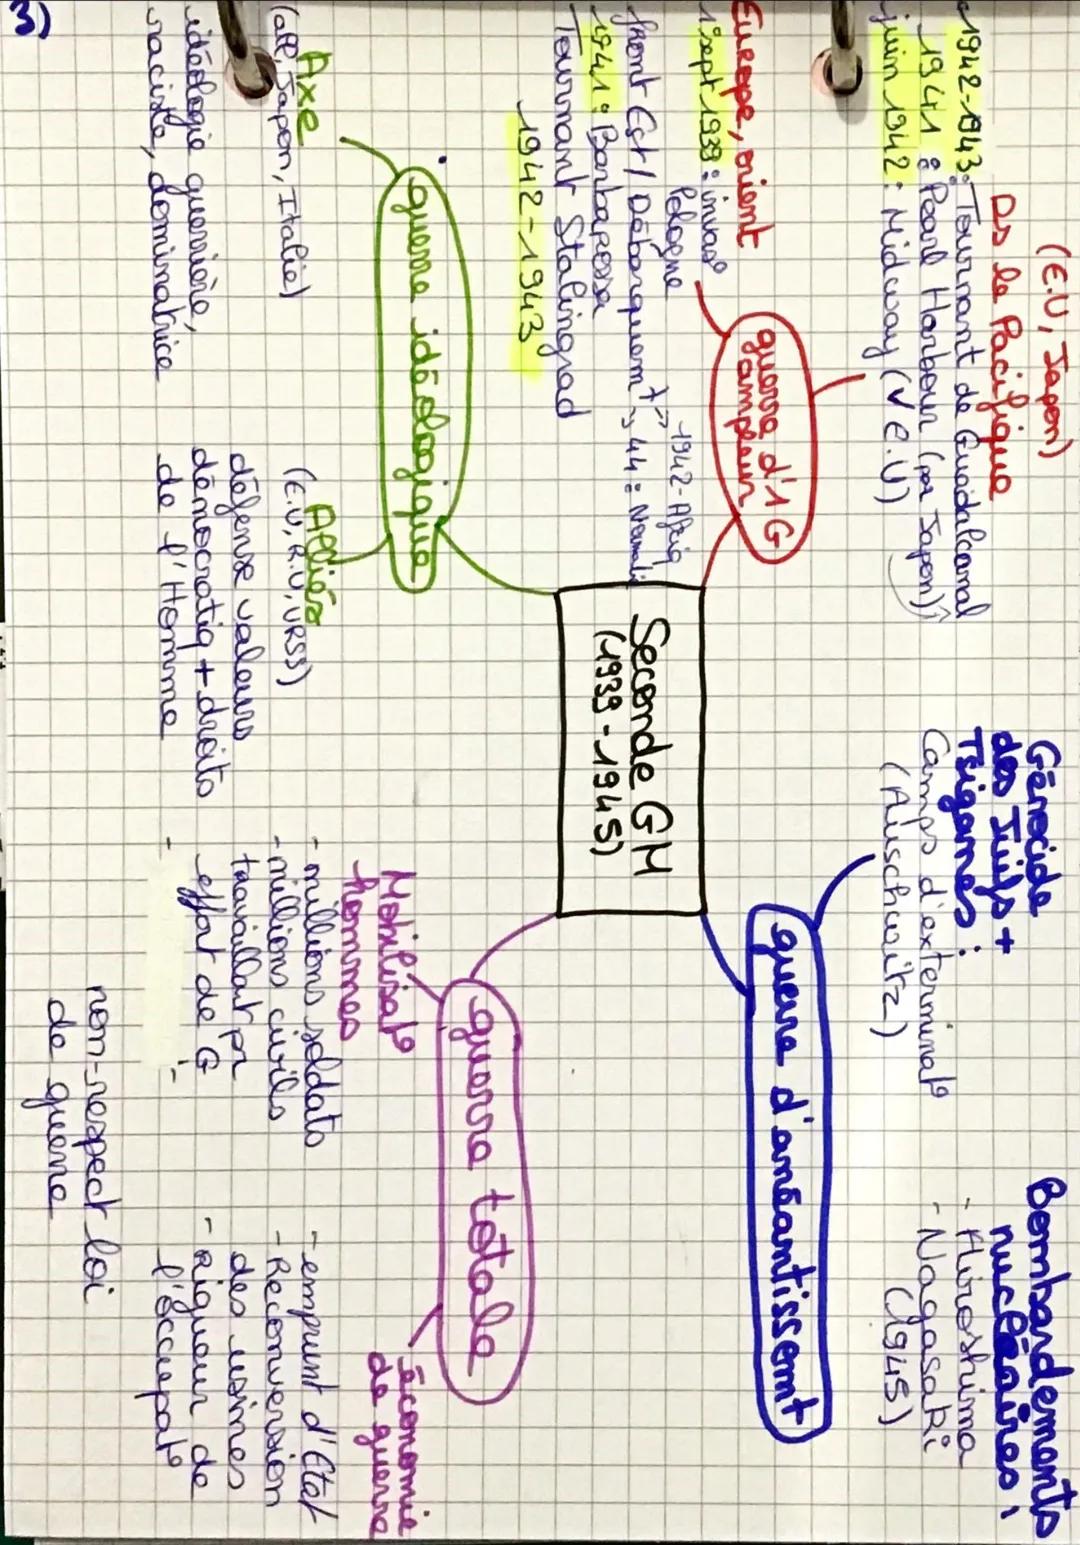 3)
Seconde GM
(1939-1945)
guerre d'1 G
ampleur
Ds le Pacifique
(E.U, Japon)
1942-1943: Tournant de Guadalcanal
1941: Pearl Harbour (par Japon)
juin 1942: Midway (V E.U)
Europe, orient
1 sept 1939: invas°
Pologne
front Est / Débarquemt → 1942-Afriq
→ 44: Normandie
1941: Barbarossa
Tournant Stalingrad
1942-1943
guerre idéologique
Axe
(all, Japon, Italie)
idéologie guerrière,
raciste, dominatrice
Alliés
(E.U, R.U, URSS)
défense valeurs
démocratiq + droits
de l'Homme
guerre d'anéantissemt
Génocide
des Juifs +
Tsiganes:
Camps d'exterminat°
(Auschwitz)
Bombardements
nucléaires:
- Hiroshima
- Nagasaki
(1945)
guerre totale
Mobilisat°
hommes
- millions soldats
- millions civils
travaillat pr
effort de G
économie
de guerre
- emprunt d'Etat
- Reconversion
des usines
- rigueur de
l'occupat°
non-respect loi
de guerre